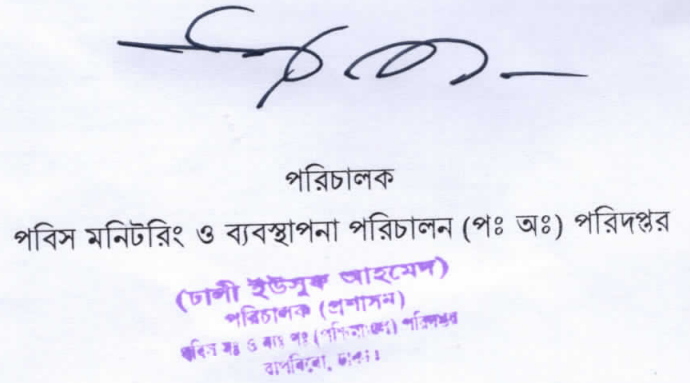 পরিচালক
পবিস মনিটরিং ও ব্যবস্থাপনা পরিচালন (পঃ অঃ) পরিদপ্তর
(ঢালী ইউসুফ আহমেদ)
পরিচালক (প্রশাসন)
পবিস মঃ ও ব্যঃ পঃ পরিদপ্তর
বাপবিবো, ঢাকা।